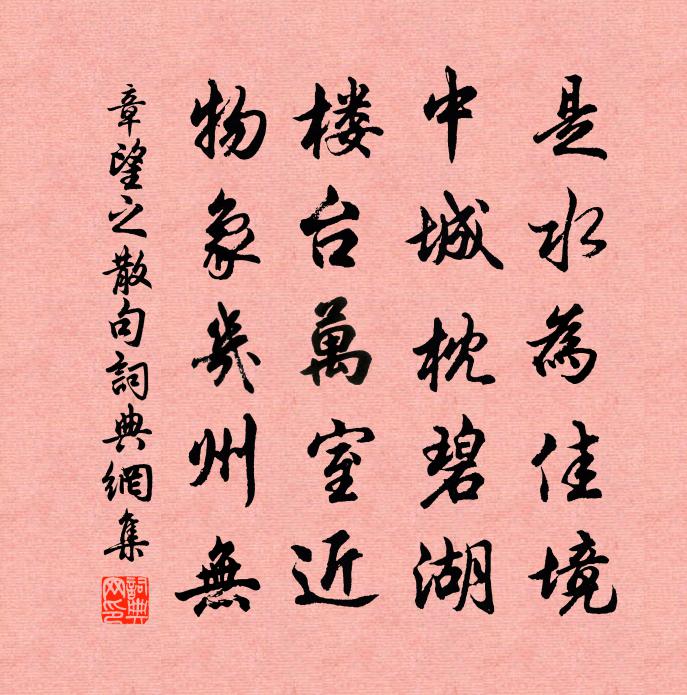 是水為佳境
中城枕碧湖
楼台萬室近
物象幾州無
章望之散句詞典網集
詞典网印